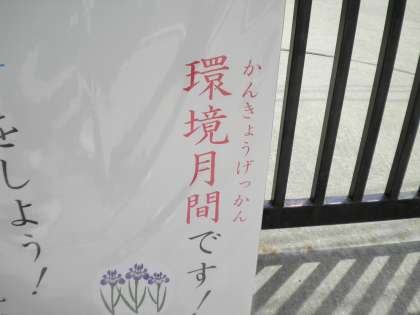 環境月間です!
かんきょうげっかん
をしよう!